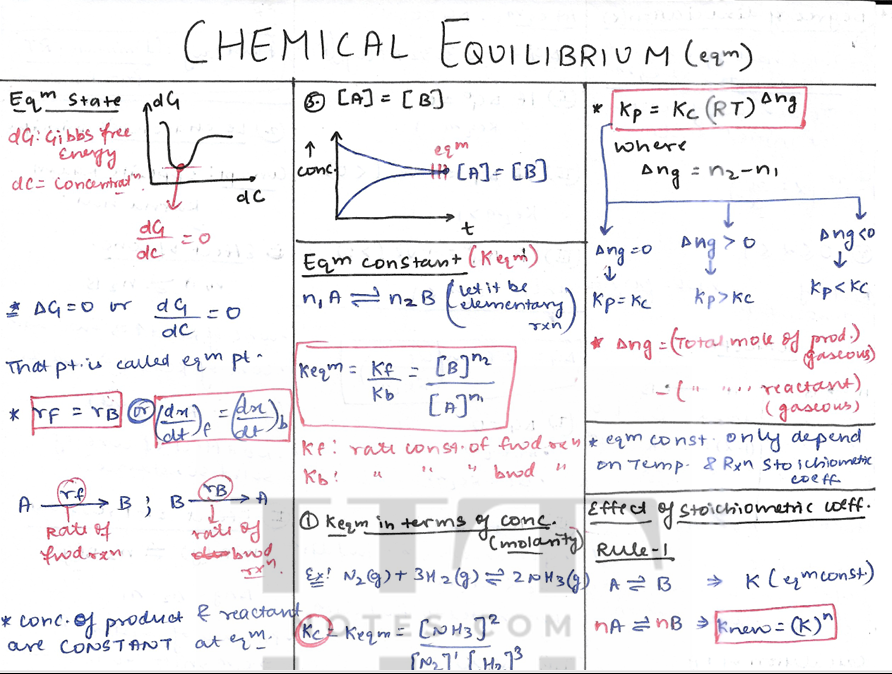 CHEMICAL EQUILIBRIUM (eqm)
Eqm State
dG
dG: Gibbs free
Energy
dC = Concentratn
dC
dG/dc = 0
* ΔG=0 or dG/dC = 0
That pt. is called eqm pt.
* rF = rB or (dx/dt)f = (dx/dt)b
A rf B ; B rB A
Rate of
fwd rxn
rate of
bwd
rxn
* conc. of product & reactant
are CONSTANT at eqm.
③ [A] = [B]
↑
conc.
eqm
[A] = [B]
t
Eqm constant (Keqm)
n1A ⇌ n2B (Let it be
elementary
rxn)
Keqm = Kf/Kb = [B]^n2/[A]^n1
Kf: rate const. of fwd rxn
Kb: " " " bwd "
① Keqm in terms of conc.
(molarity)
Ex: N2(g) + 3H2(g) ⇌ 2NH3(g)
Kc = Keqm = [NH3]^2/[N2]^1 [H2]^3
* Kp = Kc (RT)^Δng
where
Δng = n2 - n1
Δng = 0 Δng > 0 Δng < 0
Kp = Kc Kp > Kc Kp < Kc
* Δng = (Total mole of prod.)
gaseous
- ( " " " reactant)
(gaseous)
* eqm const. only depend
on Temp. & Rxn stoichiometric
coeff
Effect of Stoichiometric coeff.
Rule-1
A ⇌ B ⇒ K (eqm const.)
nA ⇌ nB ⇒ Knew = (K)^n
NOTES.COM